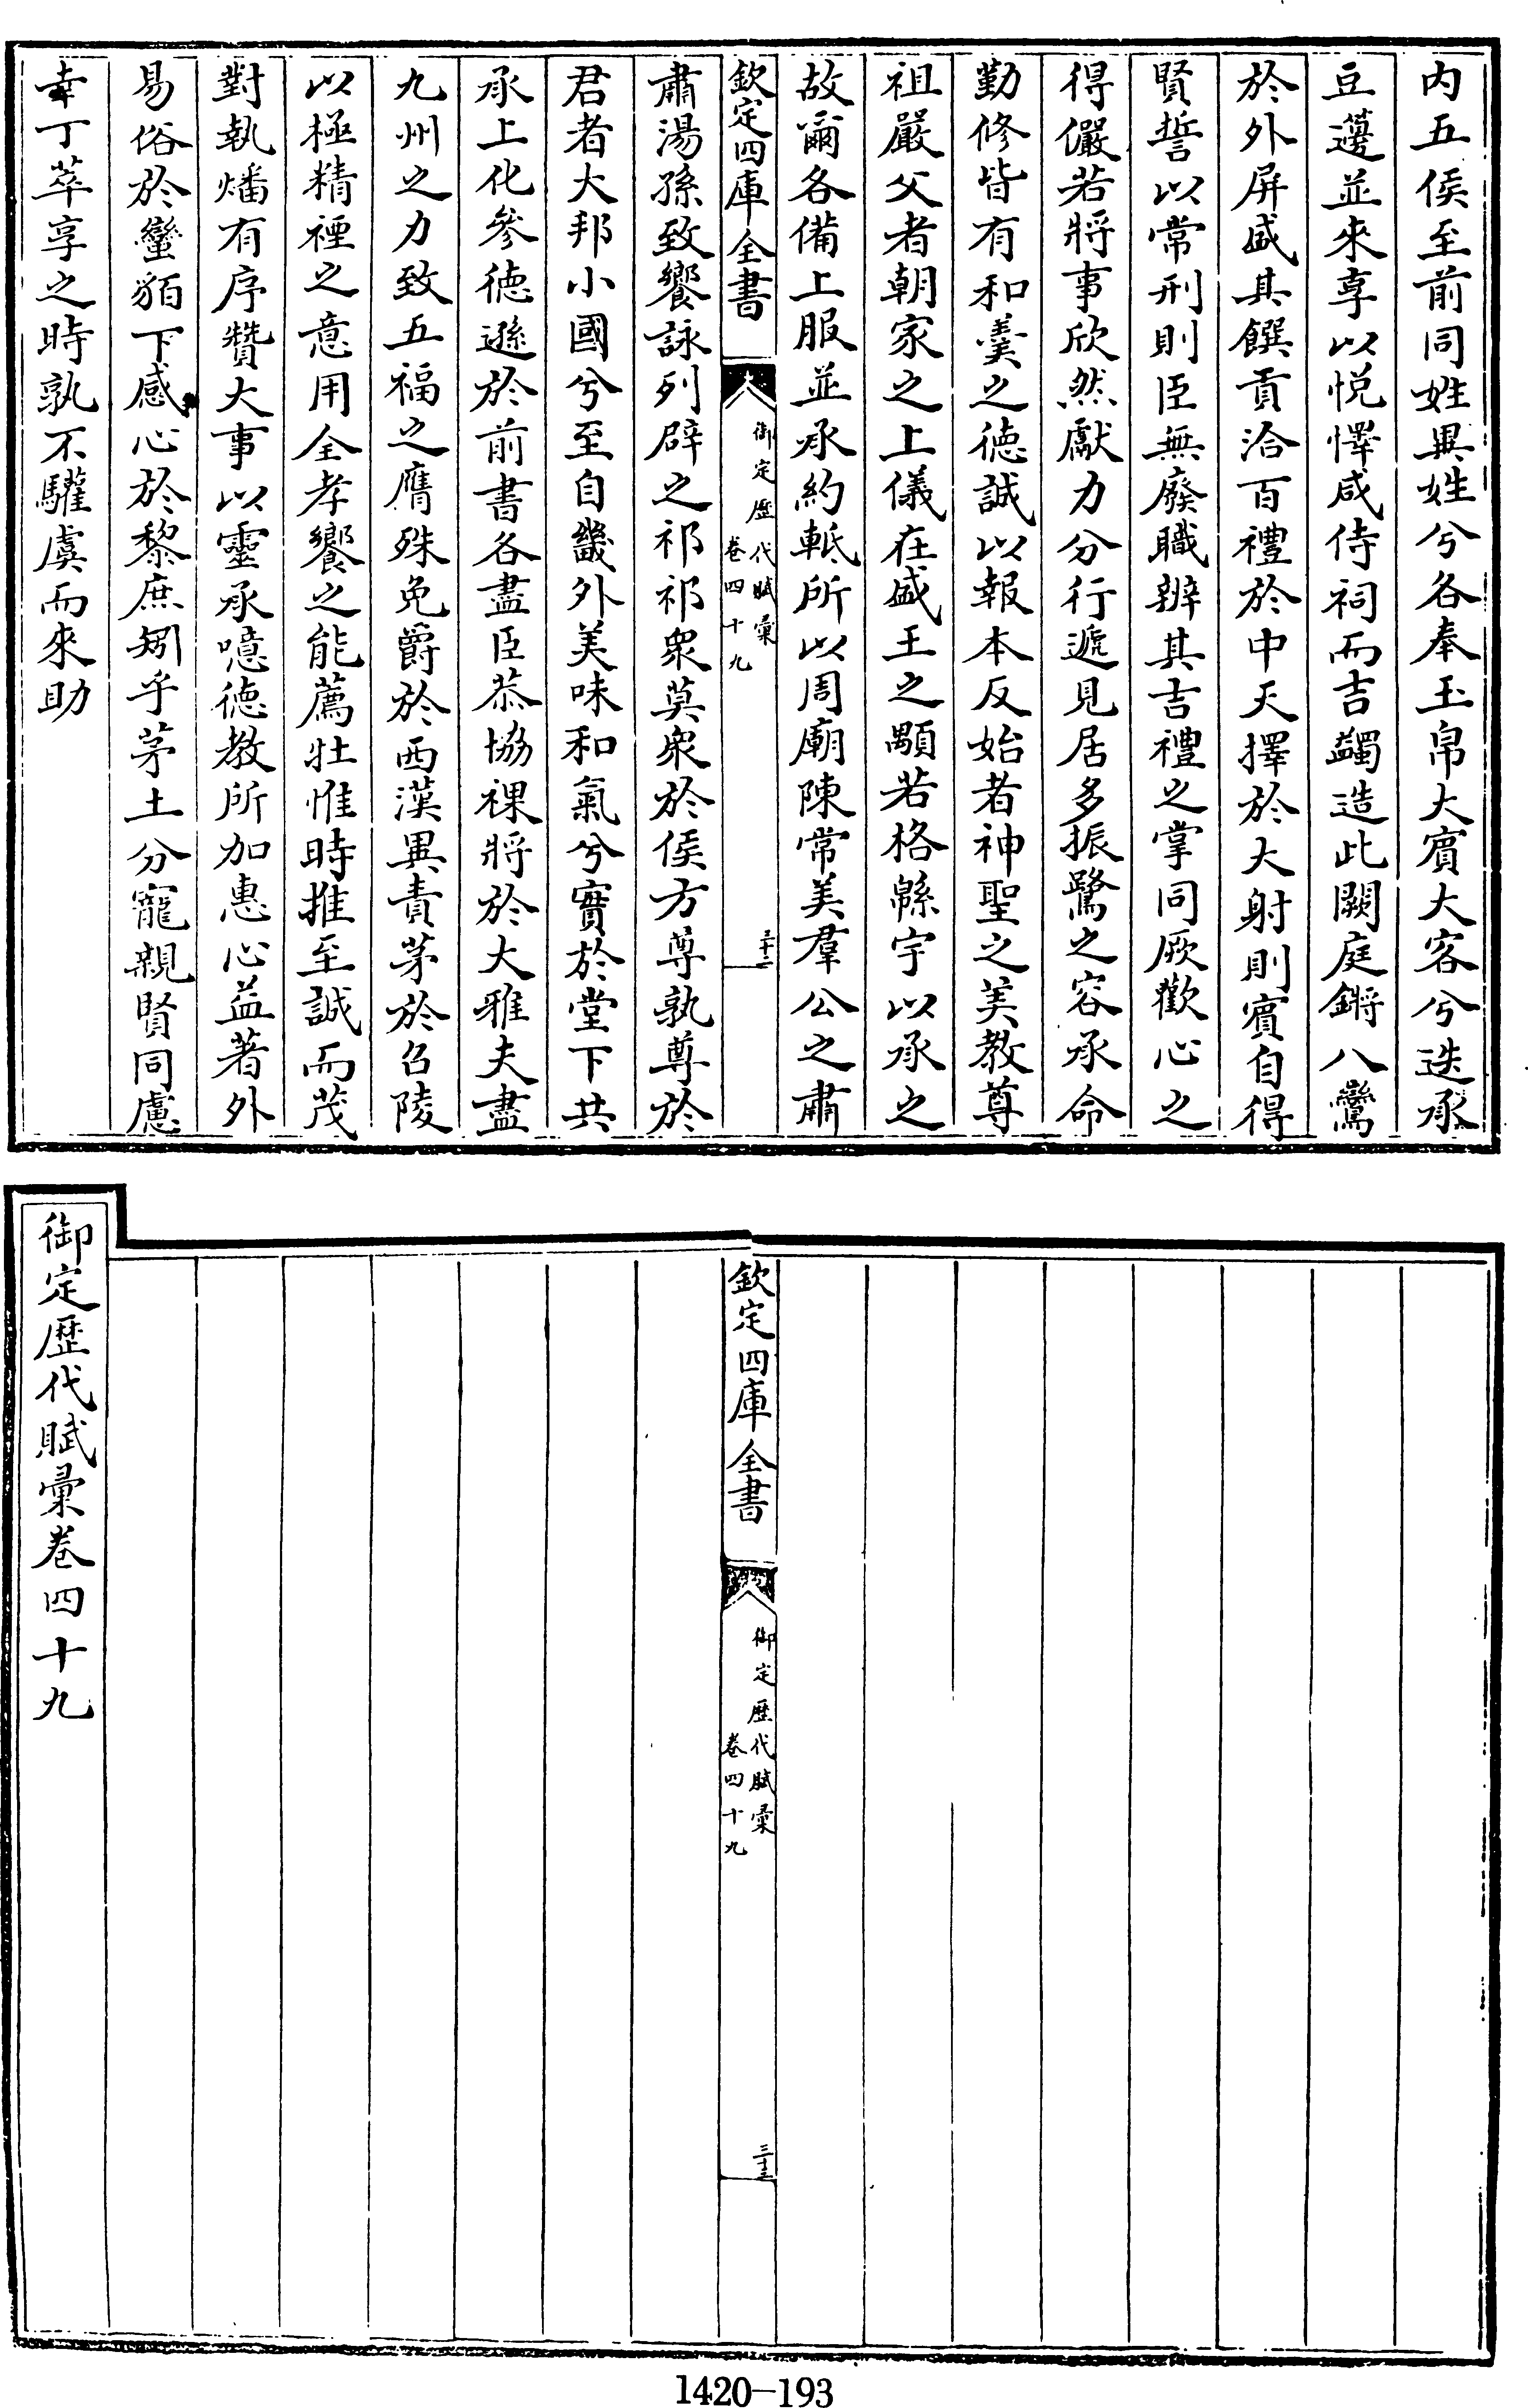 内五侯至前同姓異姓兮各奉玉帛大賓大客兮迭承
豆籩並來享以悅懌咸侍祠而吉蠲造此闕庭鏘八鸞
於外屏盛其饌貢洽百禮於中天擇於大射則賓自得
賢誓以常刑則臣無廢職辨其吉禮之掌同厥歡心之
得儼若將事欣然獻力分行遞見居多振鷺之容承命
勤修皆有和羹之德誠以報本反始者神聖之美教尊
祖嚴父者朝家之上儀在盛王之顒若格緜宇以承之
故爾各備上服並承約軝所以周廟陳常美羣公之肅
欽定四庫全書
御定歷代賦彙
卷四十九
三十二
肅湯孫致饗詠列辟之祁祁衆莫衆於侯方尊孰尊於
君者大邦小國兮至自畿外美味和氣兮實於堂下共
承上化參德遜於前書各盡臣恭協祼將於大雅夫盡
九州之力致五福之膺殊免爵於西漢異責茅於召陵
以極精禋之意用全孝饗之能薦牡惟時推至誠而茂
對執燔有序贊大事以靈承噫德教所加惠心益著外
易俗於蠻貊下感心於黎庶矧乎茅土分寵親賢同慮
幸丁萃享之時孰不驩虞而來助
欽定四庫全書
御定歷代賦彙
卷四十九
三十三
御定歷代賦彙卷四十九
1420-193